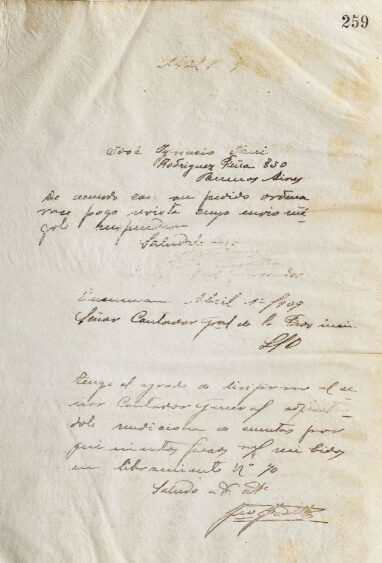 259
Abril 1
José Ignacio
Rodriguez Peña 830
Buenos Aires
De acuerdo con su pedido ordena
rase pago revista cuyo envio
suspender
Saludole
Tucuman Abril 1º/909
Señor Contador Gral de la Provincia
S/D
Tengo el agrado de dirijirme al Se
ñor Contador General adjuntan
dole rendicion de cuentas por
quinientos pesos m/n recibidos
en libramiento Nº 70
Saludo a V. atte